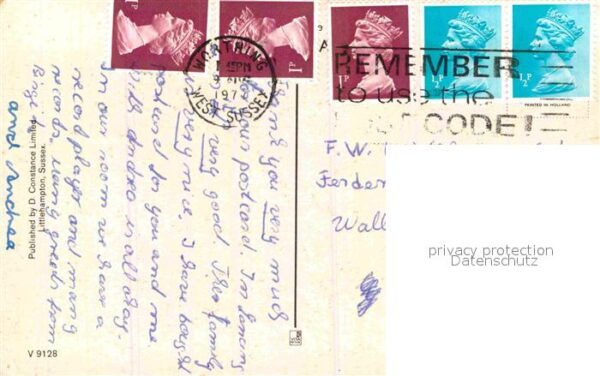 1P
1P
1P
½P
½P
WORTHING
1 45PM
9 AUG
197
WEST SUSSEX
REMEMBER
to use the
POST CODE!
PRINTED IN HOLLAND
Thank you very much
for your postcard. In Lancing
is very good. The family
is very nice. I have bought
postcard for you and me
With Andrea is all okay.
In our room we have a
record player and many
records. Many greets from
and Andrea
F.W.
Ferder
Wall
privacy protection
Datenschutz
Published by D. Constance Limited,
Littlehampton, Sussex.
V 9128